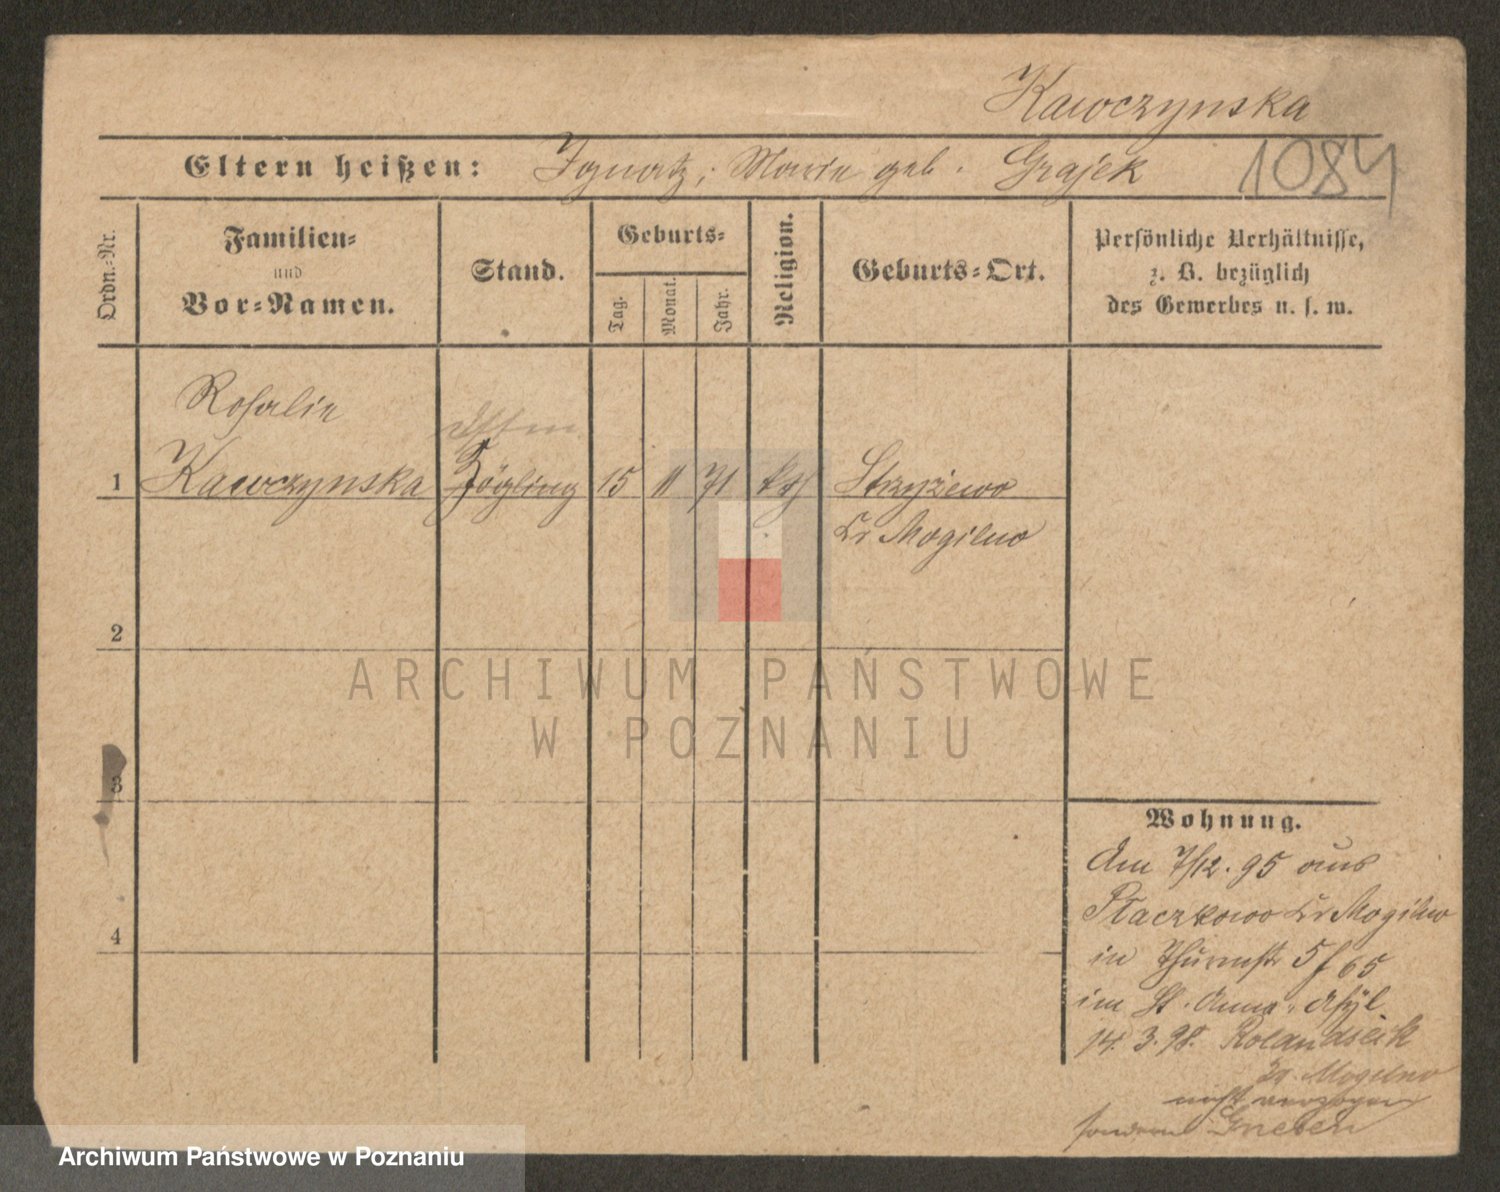 Kawczynska
Eltern heißen: Ignatz; Marie geb. Grajek 1084
Ordn.-Nr.
Familien-
und
Vor-Namen.
Stand.
Geburts-
Tag.
Monat.
Jahr.
Religion.
Geburts-Ort.
Persönliche Verhältnisse,
z. B. bezüglich
des Gewerbes u. s. w.
Rosalie
1 Kawczynska Zögling 15 11 71 kth Strzyżewo
Kr Mogilno
2
3
4
Wohnung.
Am 7/12. 95 aus
Placzkowo Kr Mogilno
in Thurmstr 5 f 65
im St. Anna-Asyl
14. 3. 98. Rolandseck
Mogilno
nicht verzogen
sondern Gnesen
ARCHIWUM PAŃSTWOWE
W POZNANIU
Archiwum Państwowe w Poznaniu